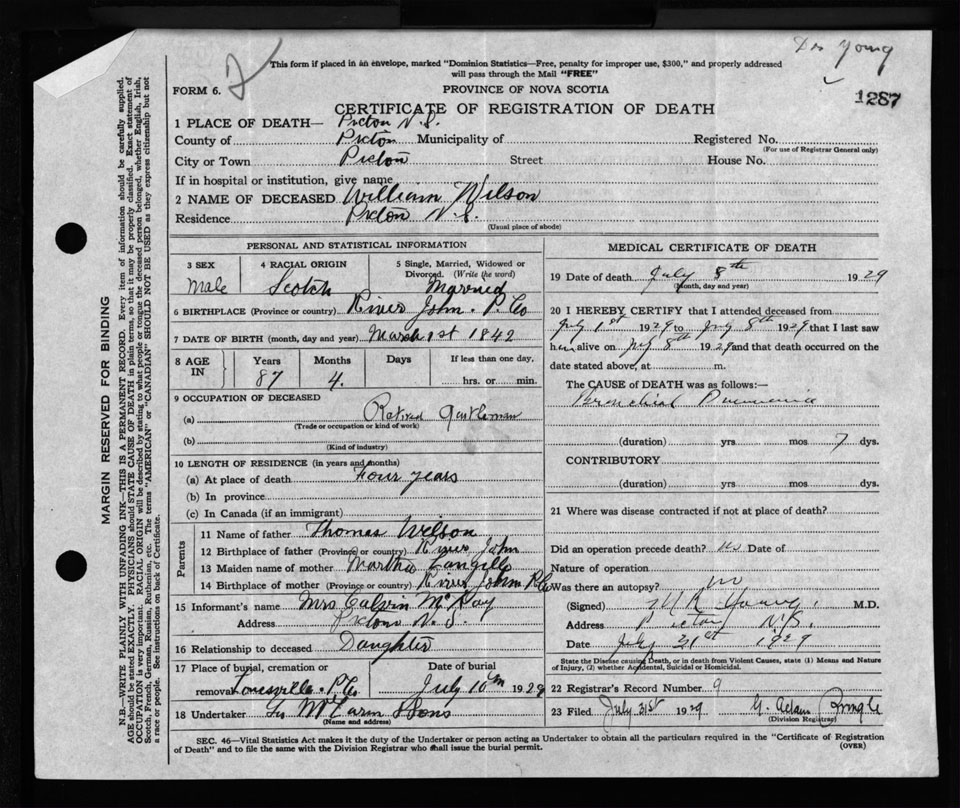 Dr Young
2
This form if placed in an envelope, marked "Dominion Statistics—Free, penalty for improper use, $300," and properly addressed
will pass through the Mail "FREE"
FORM 6.
PROVINCE OF NOVA SCOTIA
1287
CERTIFICATE OF REGISTRATION OF DEATH
1 PLACE OF DEATH— Pictou N.S.
County of Pictou Municipality of Registered No.
(For use of Registrar General only)
City or Town Pictou Street House No.
If in hospital or institution, give name
2 NAME OF DECEASED William Wilson
Residence Pictou N.S.
(Usual place of abode)
PERSONAL AND STATISTICAL INFORMATION
3 SEX 4 RACIAL ORIGIN 5 Single, Married, Widowed or
Divorced. (Write the word)
Male Scotch Married
6 BIRTHPLACE (Province or country) River John. P. Co
7 DATE OF BIRTH (month, day and year) March 1st 1842
8 AGE IN Years Months Days If less than one day,
87 4. hrs. or min.
9 OCCUPATION OF DECEASED
(a) Retired Gentleman
(Trade or occupation or kind of work)
(b)
(Kind of industry)
10 LENGTH OF RESIDENCE (in years and months)
(a) At place of death Four years
(b) In province
(c) In Canada (if an immigrant)
Parents
11 Name of father Thomas Wilson
12 Birthplace of father (Province or country) River John
13 Maiden name of mother Martha Langille
14 Birthplace of mother (Province or country) River John P.Co
15 Informant's name Mrs Calvin McKay
Address Pictou N.S.
16 Relationship to deceased Daughter
17 Place of burial, cremation or Date of burial
removal P.Co July 10th 1929
18 Undertaker & Sons
(Name and address)
MEDICAL CERTIFICATE OF DEATH
19 Date of death July 8th 1929
(Month, day and year)
20 I HEREBY CERTIFY that I attended deceased from
July 1st 1929 to July 8th 1929 that I last saw
him alive on July 8th 1929 and that death occurred on the
date stated above, at m.
The CAUSE of DEATH was as follows:—
Bronchial Pneumonia
(duration) yrs. mos 7 dys.
CONTRIBUTORY
(duration) yrs. mos. dys.
21 Where was disease contracted if not at place of death?
Did an operation precede death? No Date of
Nature of operation
Was there an autopsy? no
(Signed) Young. M.D.
Address Pictou N.S.
Date July 31st 1929
State the Disease causing Death, or in death from Violent Causes, state (1) Means and Nature
of Injury, (2) whether Accidental, Suicidal or Homicidal.
22 Registrar's Record Number 9
23 Filed July 31st 1929 G. Adam Pringle
(Division Registrar)
SEC. 46—Vital Statistics Act makes it the duty of the Undertaker or person acting as Undertaker to obtain all the particulars required in the "Certificate of Registration
of Death" and to file the same with the Division Registrar who shall issue the burial permit.
(OVER)
MARGIN RESERVED FOR BINDING
N.B.—WRITE PLAINLY WITH UNFADING INK—THIS IS A PERMANENT RECORD. Every item of information should be carefully supplied.
AGE should be stated EXACTLY. PHYSICIANS should STATE CAUSE OF DEATH in plain terms, so that it may be properly classified. Exact statement of
OCCUPATION is very important. RACIAL ORIGIN will be described by stating to what people or tongue the deceased person belonged, whether English, Irish,
Scotch, French, German, Russian, Ruthenian, etc. The terms "AMERICAN" or "CANADIAN" SHOULD NOT BE USED as they express citizenship but not
a race or people. See instructions on back of Certificate.